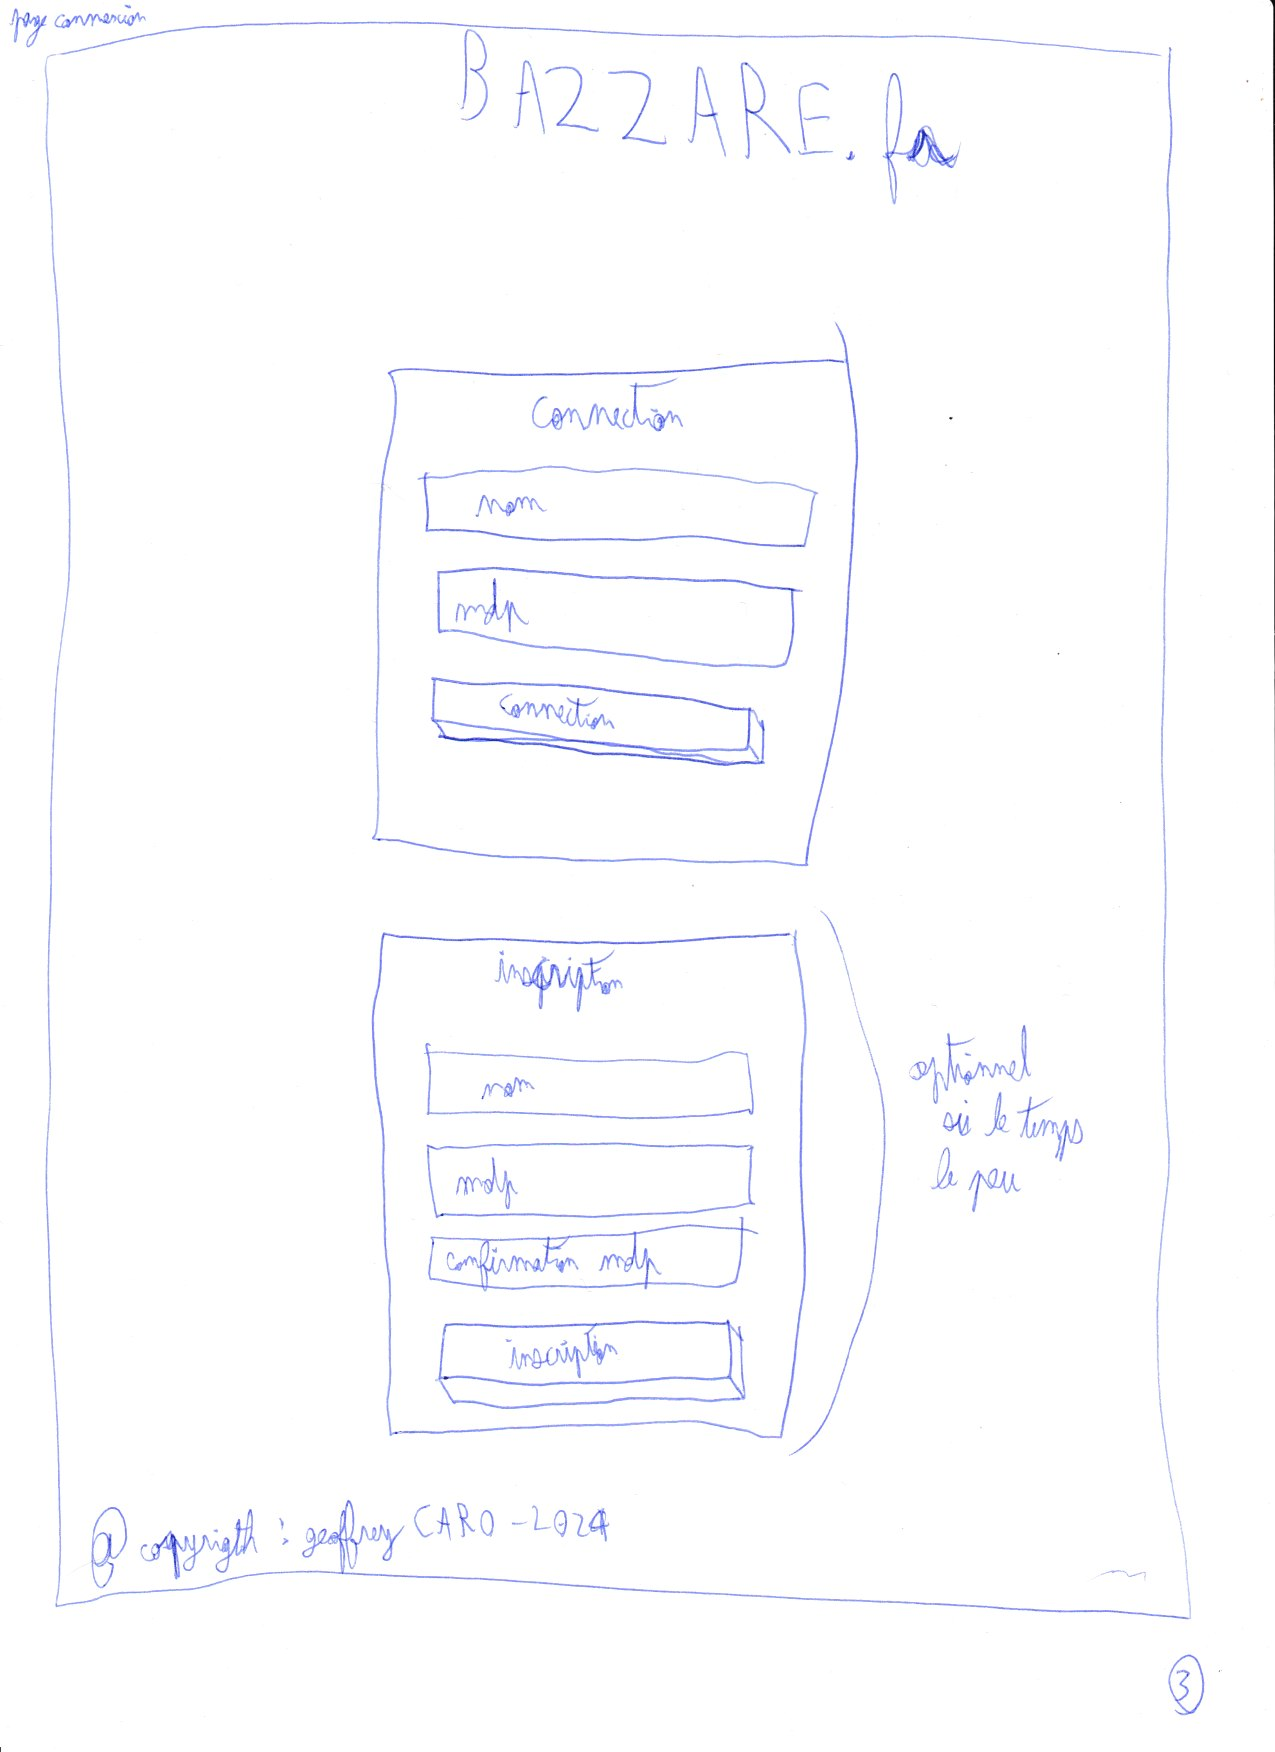 page connexion
BAZZARE.fr
Connection
nom
mdp
connection
inscription
nom
mdp
confirmation mdp
inscription
optionnel
si le temps
le peu
@ copyrigth : geoffrey CARO - 2024
3